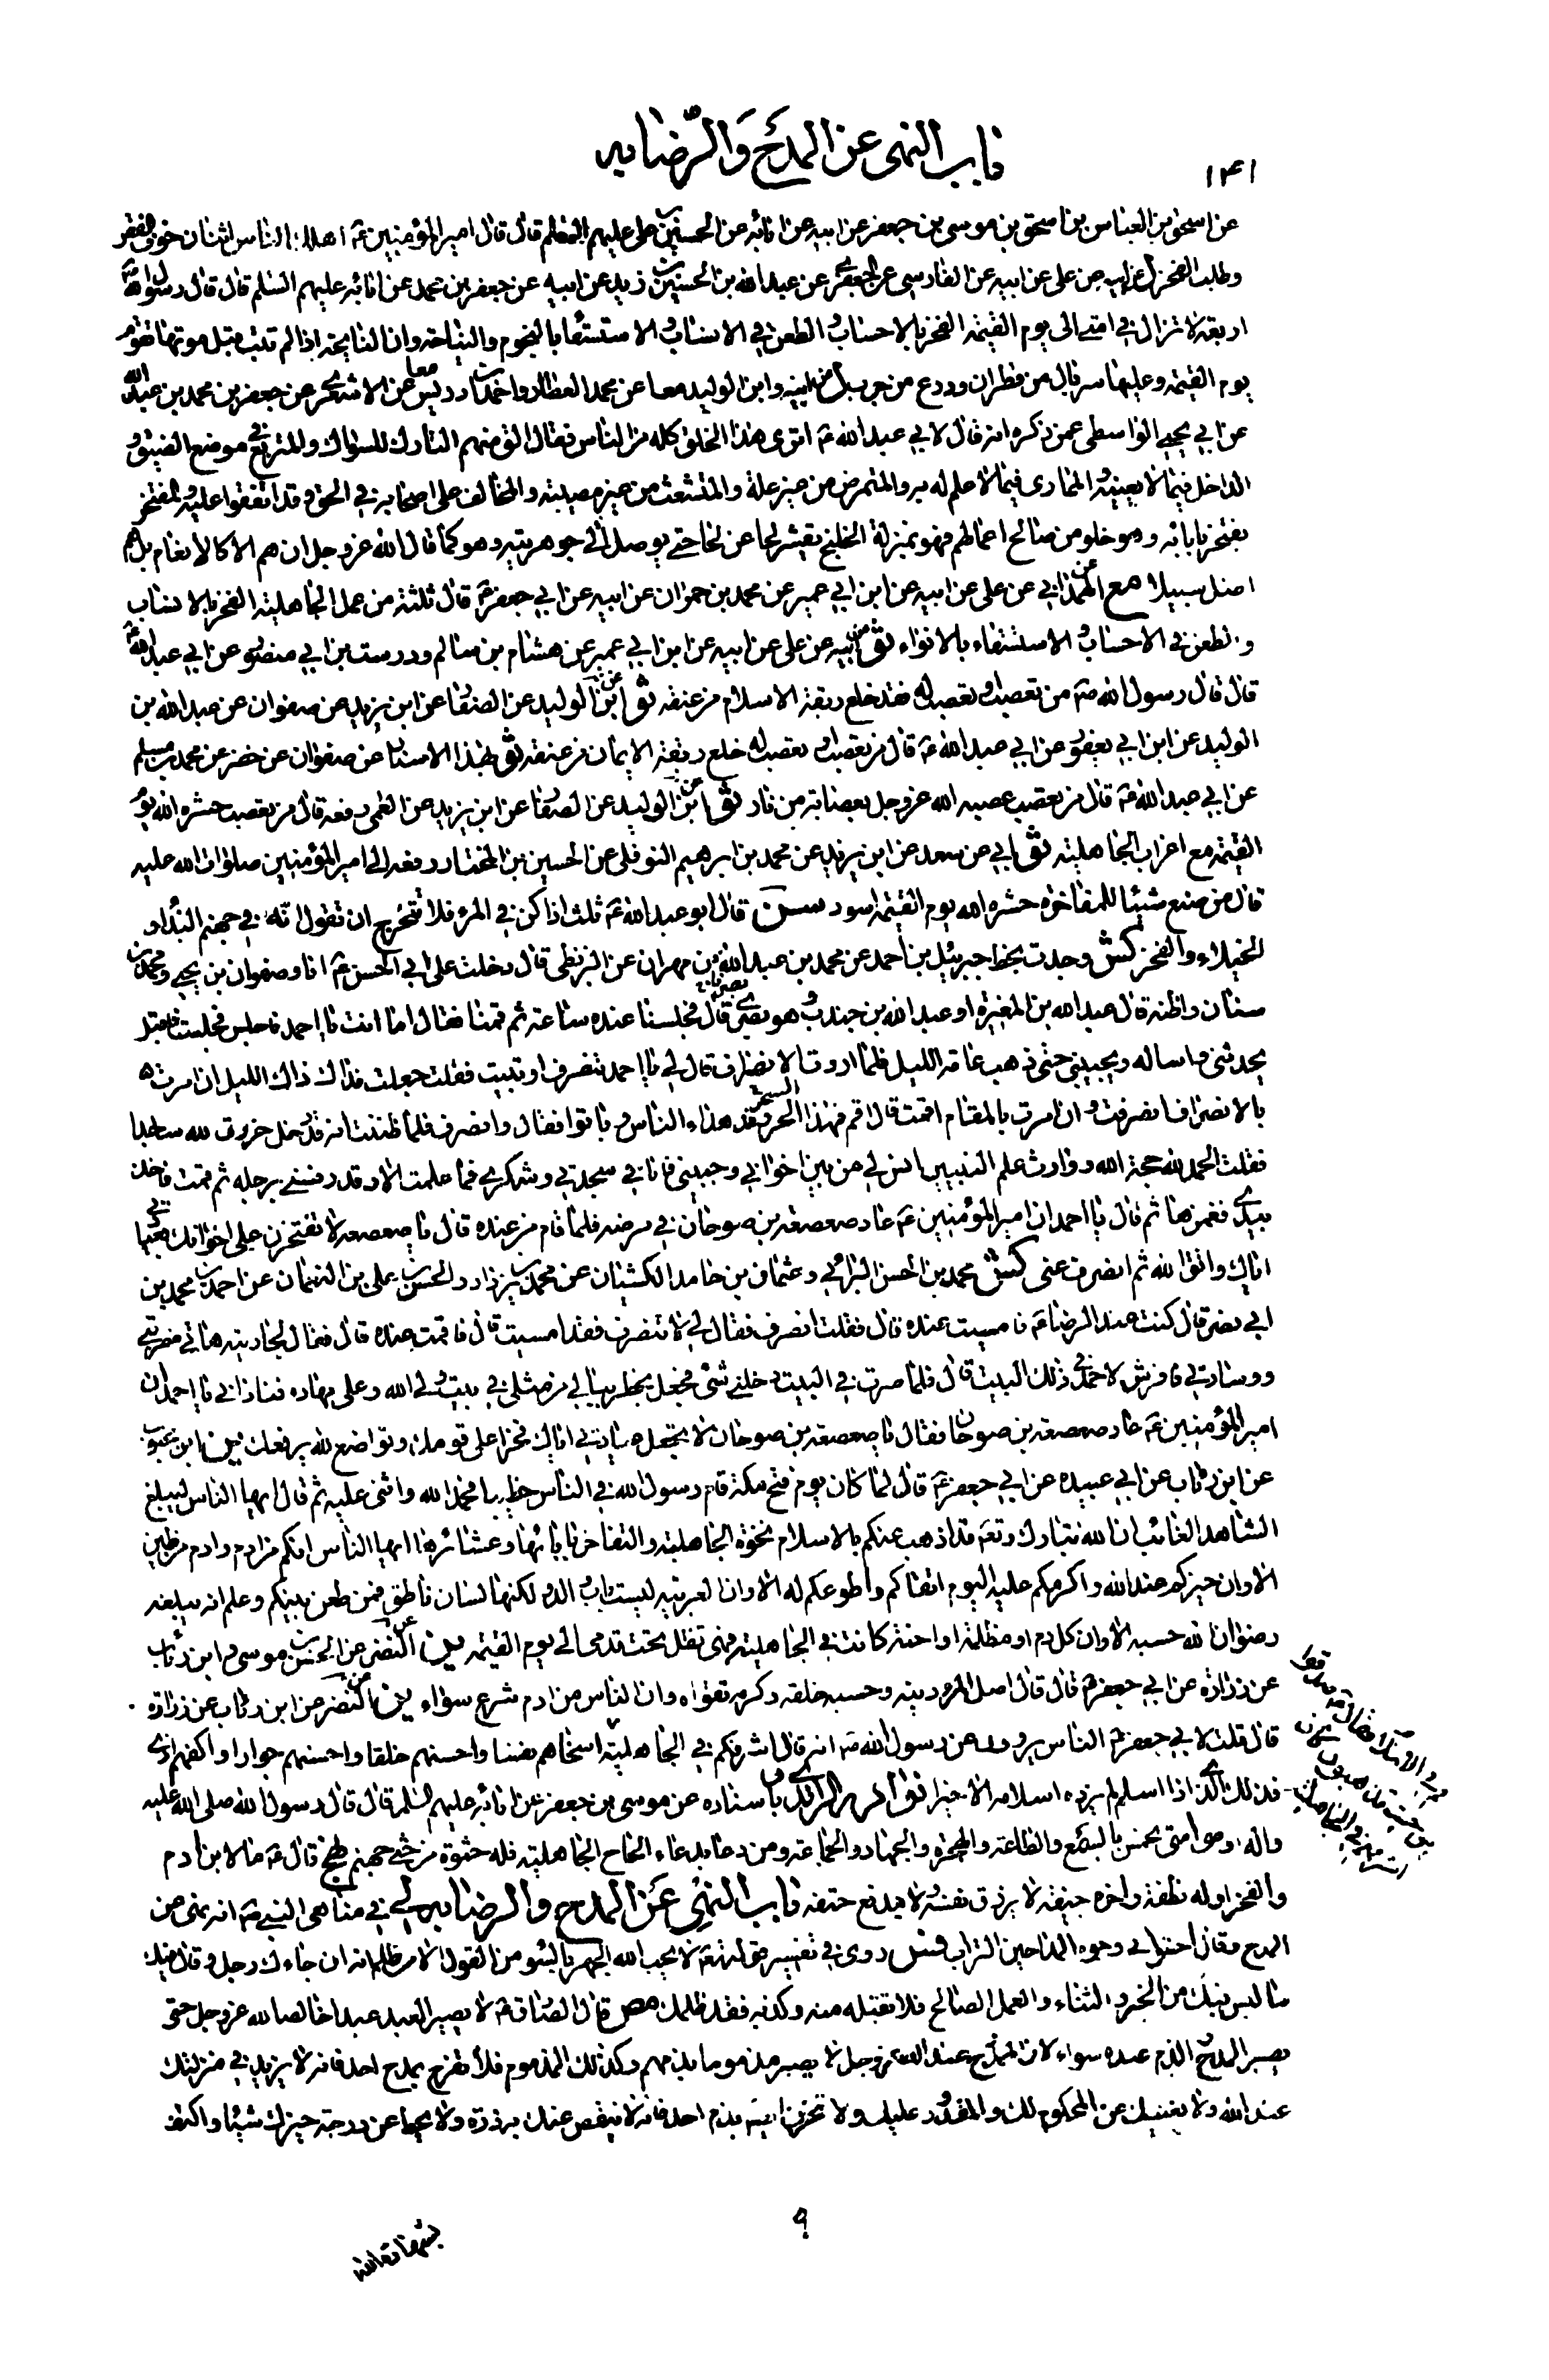 باب النهى عن المدح والرضا به
١٤١
عن اسحق بن العباس بن اسحق بن موسى بن جعفر عن ابيه عن ابائه عن الحسين بن على عليهم السلم قال قال امير المؤمنين ع اهلك الناس اثنان خوف الفقر
وطلب الفخر ل عن ابيه عن على عن ابيه عن الفارسى عن الجعفرى عن عبد الله بن الحسين بن زيد عن ابيه عن جعفر بن محمد عن ابائه عليهم السلم قال قال رسول الله ص
اربعة لا تزال في امتى الى يوم القيمة الفخر بالاحساب والطعن في الانساب والاستسقاء بالنجوم والنياحة وان النايحة اذا لم تتب قبل موتها تقوم
يوم القيمة وعليها سربال من قطران ودرع من جرب ل عن ابيه وابن الوليد معا عن محمد العطار واحمد بن ادريس معا عن الاشعرى عن جعفر بن محمد بن عبد الله
عن ابي يحيى الواسطى عمن ذكره انه قال لابي عبد الله ع اترى هذا الخلق كله من الناس فقال الق منهم التارك للسواك والمتربع في موضع الضيق و
الداخل فيما لا يعنيه والممارى فيما لا علم له به والمتمرض من غير علة والمتشعث من غير مصيبة والمخالف على اصحابه في الحق وقد اتفقوا عليه والمفتخر
يفتخر بابائه وهو خلو من صالح اعمالهم فهو بمنزلة الخلنج يقشر لحا عن لحا حتى يوصل الى جوهريته وهو كما قال الله عز وجل ان هم الا كالانعام بل هم
اضل سبيلا مع عن الهمذاني عن على عن ابيه عن ابن ابي عمير عن محمد بن حمران عن ابيه عن ابي جعفر ع قال ثلثة من عمل الجاهلية الفخر بالانساب
والطعن في الاحساب والاستسقاء بالانواء ثو عن ابيه عن على عن ابيه عن ابن ابي عمير عن هشام بن سالم ودرست بن ابي منصور عن ابي عبد الله ع
قال قال رسول الله ص من تعصب او تعصب له فقد خلع ربقة الاسلام من عنقه ثو عن ابن الوليد عن الصفار عن ابن يزيد عن صفوان عن عبد الله بن
الوليد عن ابن ابي يعفور عن ابي عبد الله ع قال من تعصب او تعصب له خلع ربقة الايمان من عنقه ثو بهذا الاسناد عن صفوان عن خضر عن محمد بن مسلم
عن ابي عبد الله ع قال من تعصب عصبه الله عز وجل بعصابة من نار ثو عن ابن الوليد عن الصفار عن ابن يزيد عن العمى رفعه قال من تعصب حشره الله يوم
القيمة مع اعراب الجاهلية ثو ابي عن سعد عن ابن يزيد عن محمد بن ابرهيم النوفلى عن الحسين بن المختار رفعه الى امير المؤمنين صلوات الله عليه
قال من صنع شيئا للمفاخرة حشره الله يوم القيمة اسود سن قال ابو عبد الله ع ثلث اذا كن في المرء فلا تتحرج ان تقول انه في جهنم البذاء و
الخيلاء والفخر كش وجدت بخط جبرئيل بن احمد عن محمد بن عبد الله بن مهران عن البزنطى قال دخلت على ابي الحسن ع انا وصفوان بن يحيى ومحمد بن
سنان واظنه قال عبد الله بن المغيرة او عبد الله بن جندب وهو بصرى قال فجلسنا عنده ساعة ثم قمنا فقال اما انت يا احمد فاجلس فجلست فاقبل
يحدثني واساله ويجيبنى حتى ذهب عامة الليل فلما اردت الانصراف قال لى يا احمد تنصرف او تبيت فقلت جعلت فداك ذاك اليك ان امرت
بالانصراف انصرفت وان امرت بالمقام اقمت قال اقم فهذا الحرس وقد هداء الناس وباتوا فقال وانصرف فلما ظننت انه قد دخل خررت لله ساجدا
فقلت الحمد لله حجة الله ووارث علم النبيين انس لى من بين اخوانى وحببنى فانا في سجدتى وشكرى فما علمت الا وقد رفسنى برجله ثم قمت فاخذ
بيدى فغمزها ثم قال يا احمد ان امير المؤمنين ع عاد صعصعة بن صوحان في مرضه فلما قام من عنده قال يا صعصعة لا تفتخرن على اخوانك بعيادتى
اياك واتق الله ثم انصرف عنى كش محمد بن الحسن البراثى وعثمان بن حامد الكشيان عن محمد بن يزداد والحسن بن على بن النعمان عن احمد بن محمد بن
ابي نصر قال كنت عند الرضا ع فامسيت عنده قال فقلت انصرف فقال لى لا تنصرف فقد امسيت قال فاقمت عنده قال فقال لجاريته هاتى مضربتى
ووسادتى فافرشى لاحمد في ذلك البيت قال فلما صرت في البيت دخلنى شئ فجعل يخطر ببالى من مثلى في بيت ولى الله وعلى مهاده فنادانى يا احمد ان
امير المؤمنين ع عاد صعصعة بن صوحان فقال يا صعصعة بن صوحان لا تجعل عيادتى اياك فخرا على قومك وتواضع لله يرفعك ين ابن محبوب
عن ابن رئاب عن ابي عبيدة عن ابي جعفر ع قال لما كان يوم فتح مكة قام رسول الله في الناس خطيبا فحمد الله واثنى عليه ثم قال ايها الناس ليبلغ
الشاهد الغائب ان الله تبارك وتع قد اذهب عنكم بالاسلام نخوة الجاهلية والتفاخر بابائها وعشائرها ايها الناس انكم من ادم وادم من طين
الا وان خيركم عند الله واكرمكم عليه اليوم اتقاكم واطوعكم له الا وان العربية ليست باب والد ولكنها لسان ناطق فمن طعن بينكم وعلم انه يبلغه
رضوان الله حسبه الا وان كل دم او مظلمة او احنة كانت في الجاهلية فهى تظل تحت قدمى الى يوم القيمة ين عن النضر عن الحسن بن موسى وابن رئاب
عن زرارة عن ابي جعفر ع قال قال اصل المرء دينه وحسبه خلقه وكرمه تقواه وان الناس من ادم شرع سواء ين عن النضر عن ابن رئاب عن زرارة
قال قلت لابي جعفر ع الناس يروون عن رسول الله ص انه قال اشرفكم في الجاهلية اسخاهم نفسا واحسنهم خلقا واحسنهم جوارا واكفهم اذى
فذلك الذى اذا اسلم لم يزده اسلامه الا خيرا نوادر الراوندى باسناده عن موسى بن جعفر عن ابائه عليهم السلم قال قال رسول الله صلى الله عليه
واله اوصى امتى بخمس بالسمع والطاعة والهجرة والجهاد والجماعة ومن دعا بدعاء الجاهلية فله حثوة من حثى جهنم نهج قال ع ما لابن ادم
والفخر اوله نطفة واخره جيفة لا يرزق نفسه ولا يدفع حتفه باب النهى عن المدح والرضا به لى في مناهى النبى ص انه نهى عن
المدح وقال احثوا في وجوه المداحين التراب فس روى في تفسير قوله تع لا يحب الله الجهر بالسوء من القول الا من ظلم انه ان جاءك رجل وقال فيك
ما ليس فيك من الخير والثناء والعمل الصالح فلا تقبله منه وكذبه فقد ظلمك مص قال الصادق ع لا يصير العبد عبدا خالصا لله عز وجل حتى
يصير المدح والذم عنده سواء لان الممدوح عند الله عز وجل لا يصير مذموما بذمهم وكذلك المذموم فلا تفرح بمدح احد فانه لا يزيد في منزلتك
عند الله ولا يغنيك عن المحكوم لك والمقدور عليك ولا تحزن ايضا بذم احد فانه لا ينقص عنك به ذرة ولا يحط عن درجة خيرك شيئا واكتف
٩
بشهادة الله